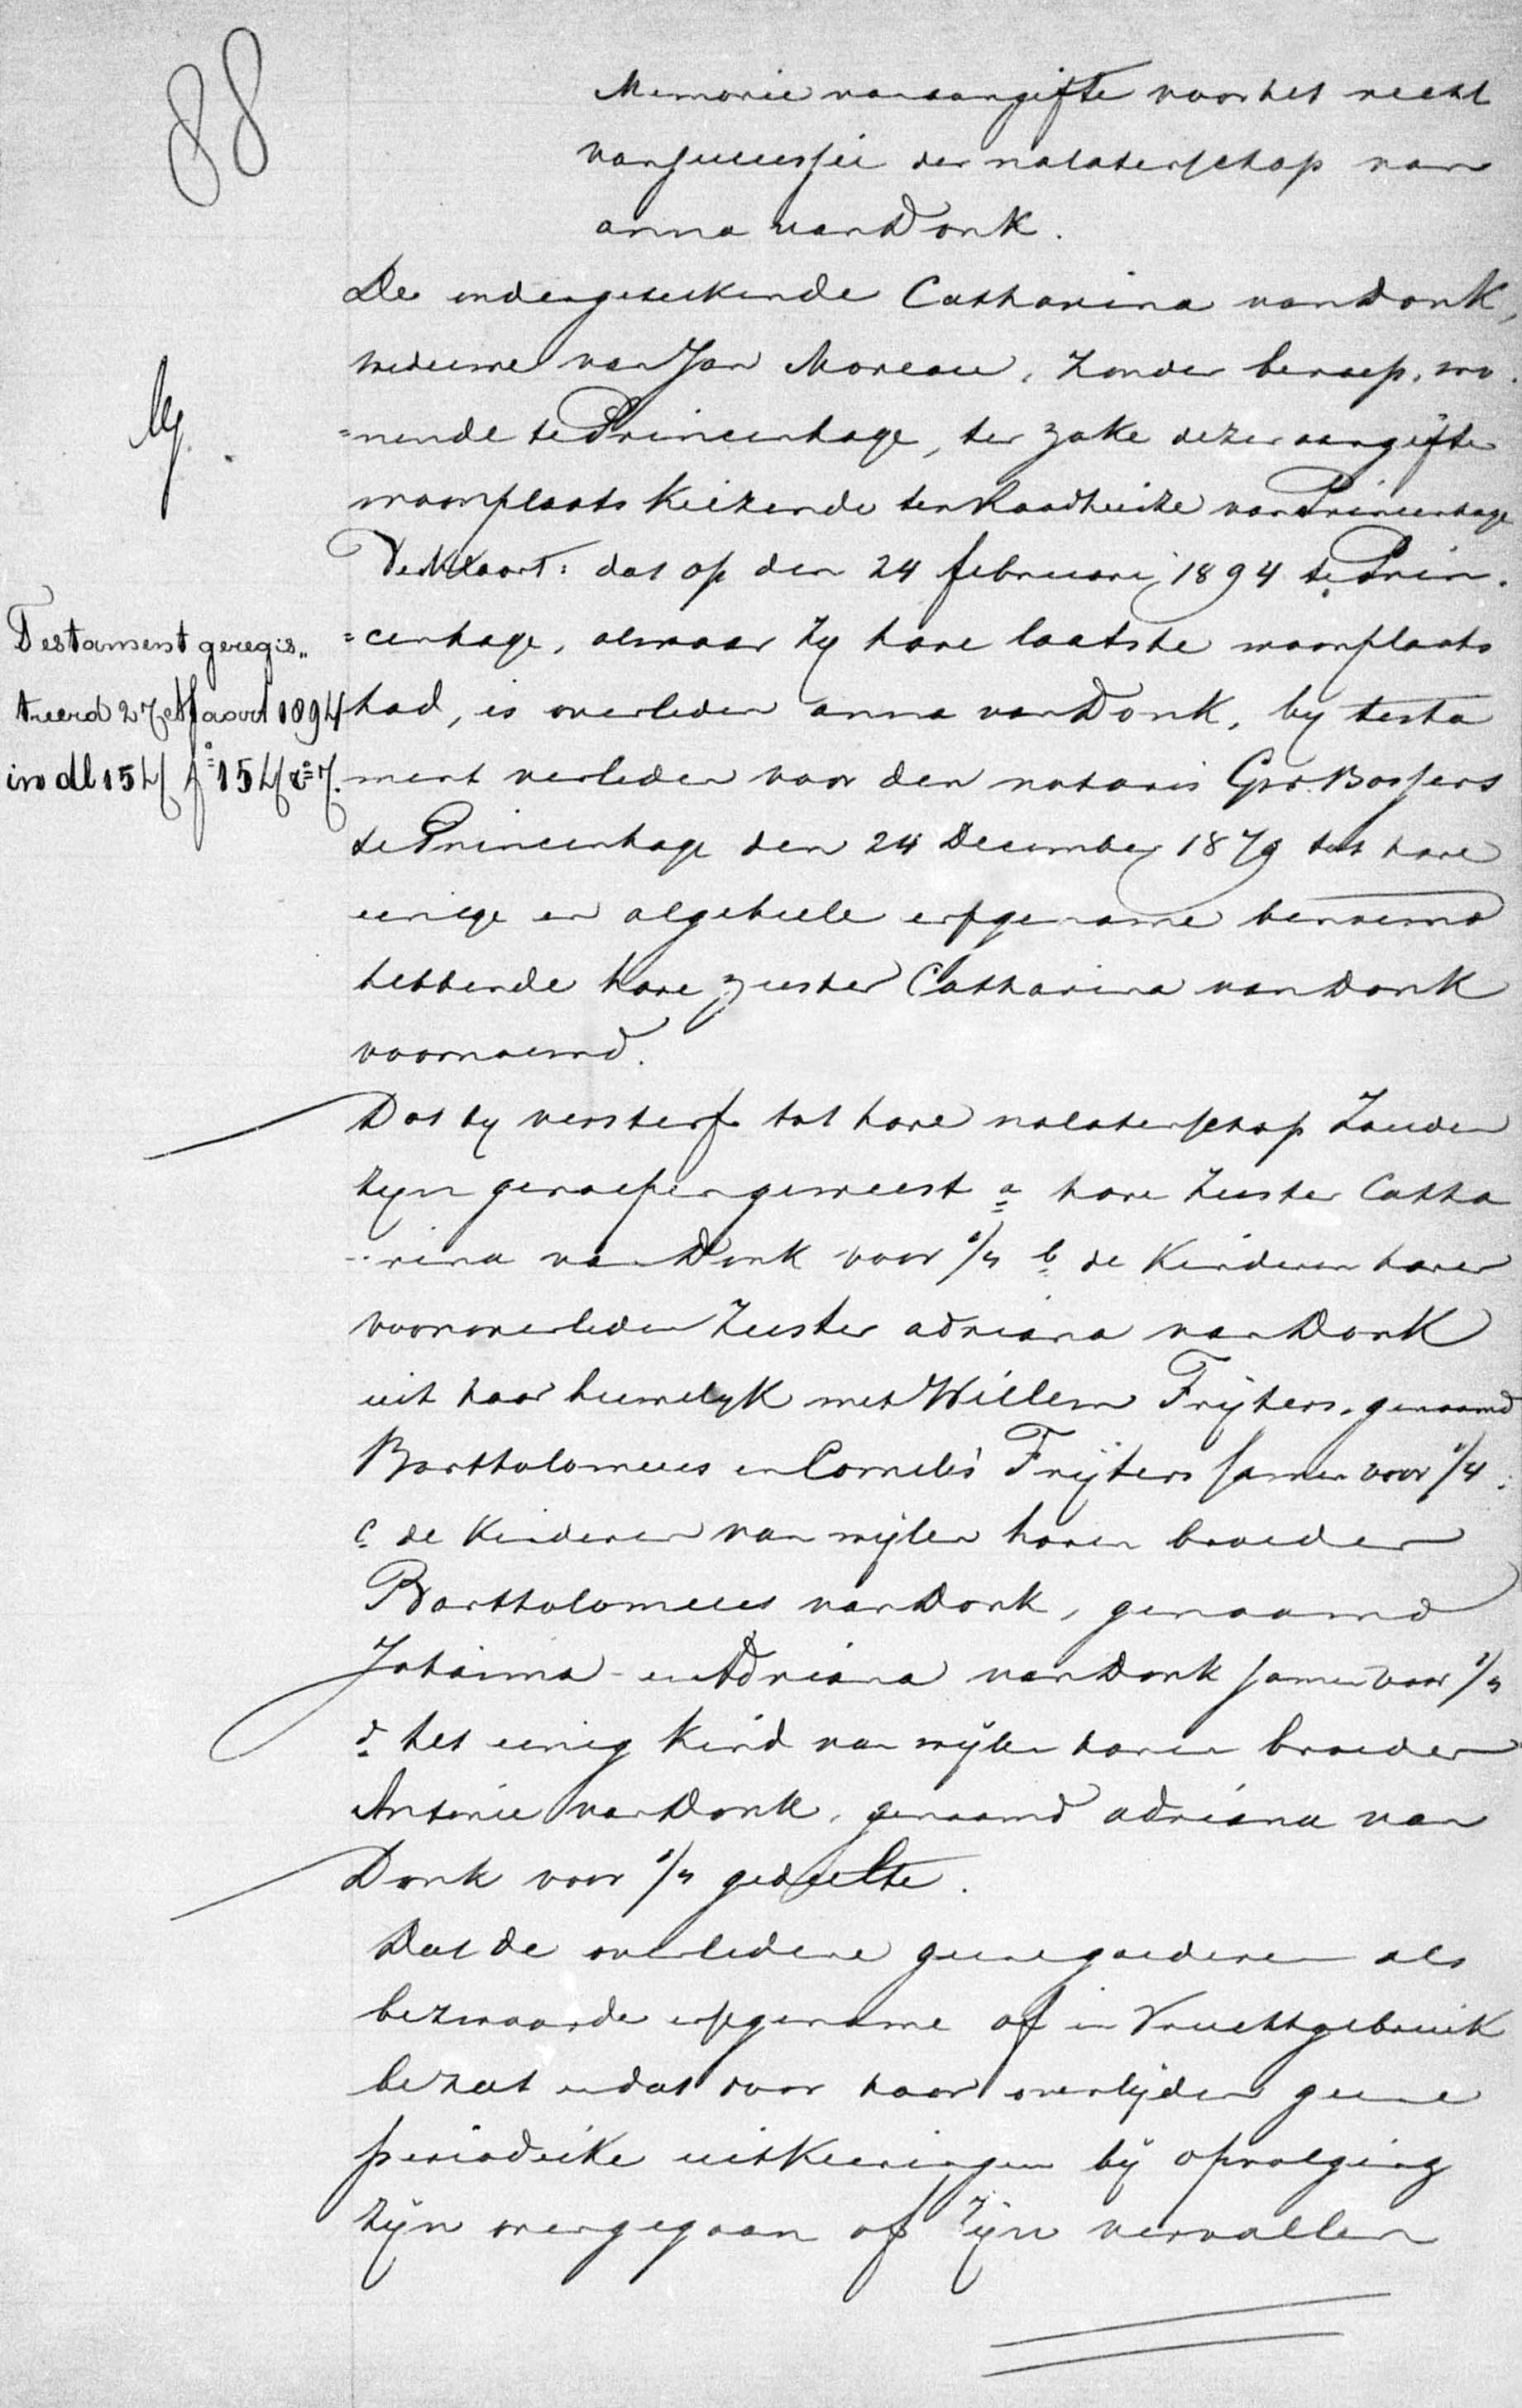 88
Memorie van aangifte voor het recht
van successie der nalatenschap van
anna van Donk.
De ondergeteekende Catharina van Donk,
weduwe van Jan Moreau, zonder beroep, wo
=nende te Princenhage, ter zake dezer aangifte
woonplaats kiezende ten Raadhuize van Princenhage
Verklaart: dat op den 24 februari 1894 te Prin.
=cenhage, alwaar zy hare laatste woonplaats
had, is overleden anna van Donk, by testa
ment verleden voor den notaris Bossers
te Princenhage den 24 December 1879 tot hare
eenige en algeheele erfgename benoemd
hebbende hare zuster Catharina van Donk
voornoemd.
Testament geregis„
treerd 27 Maart 1894
in dl 154 fo 154 vo 7.
Dat by versterf tot hare nalatenschap zouden
zyn geroepen geweest a hare zuster Catha
rina van Donk voor 1/4 b de kinderen harer
vooroverleden zuster adriana van Donk
uit haar huwelyk met Willem Frijters, genaamd
Bartholomeus en Cornelis Frijters samen voor 1/4:
c de kinderen van wijlen haren broeder
Bartholomeus van Donk, genaamd
Johanna en Adriana van Donk samen voor 1/4
d het eenig kind van wijlen haren broeder
Antonie van Donk, genaamd adriana van
Donk voor 1/4 gedeelte.
Dat de overledene geene goederen als
bezwaarde erfgename of in Vruchtgebruik
bezat en dat door haar overlijden geene
periodieke uitkeeringen bij opvolging
zijn overgegaan of zijn vervallen